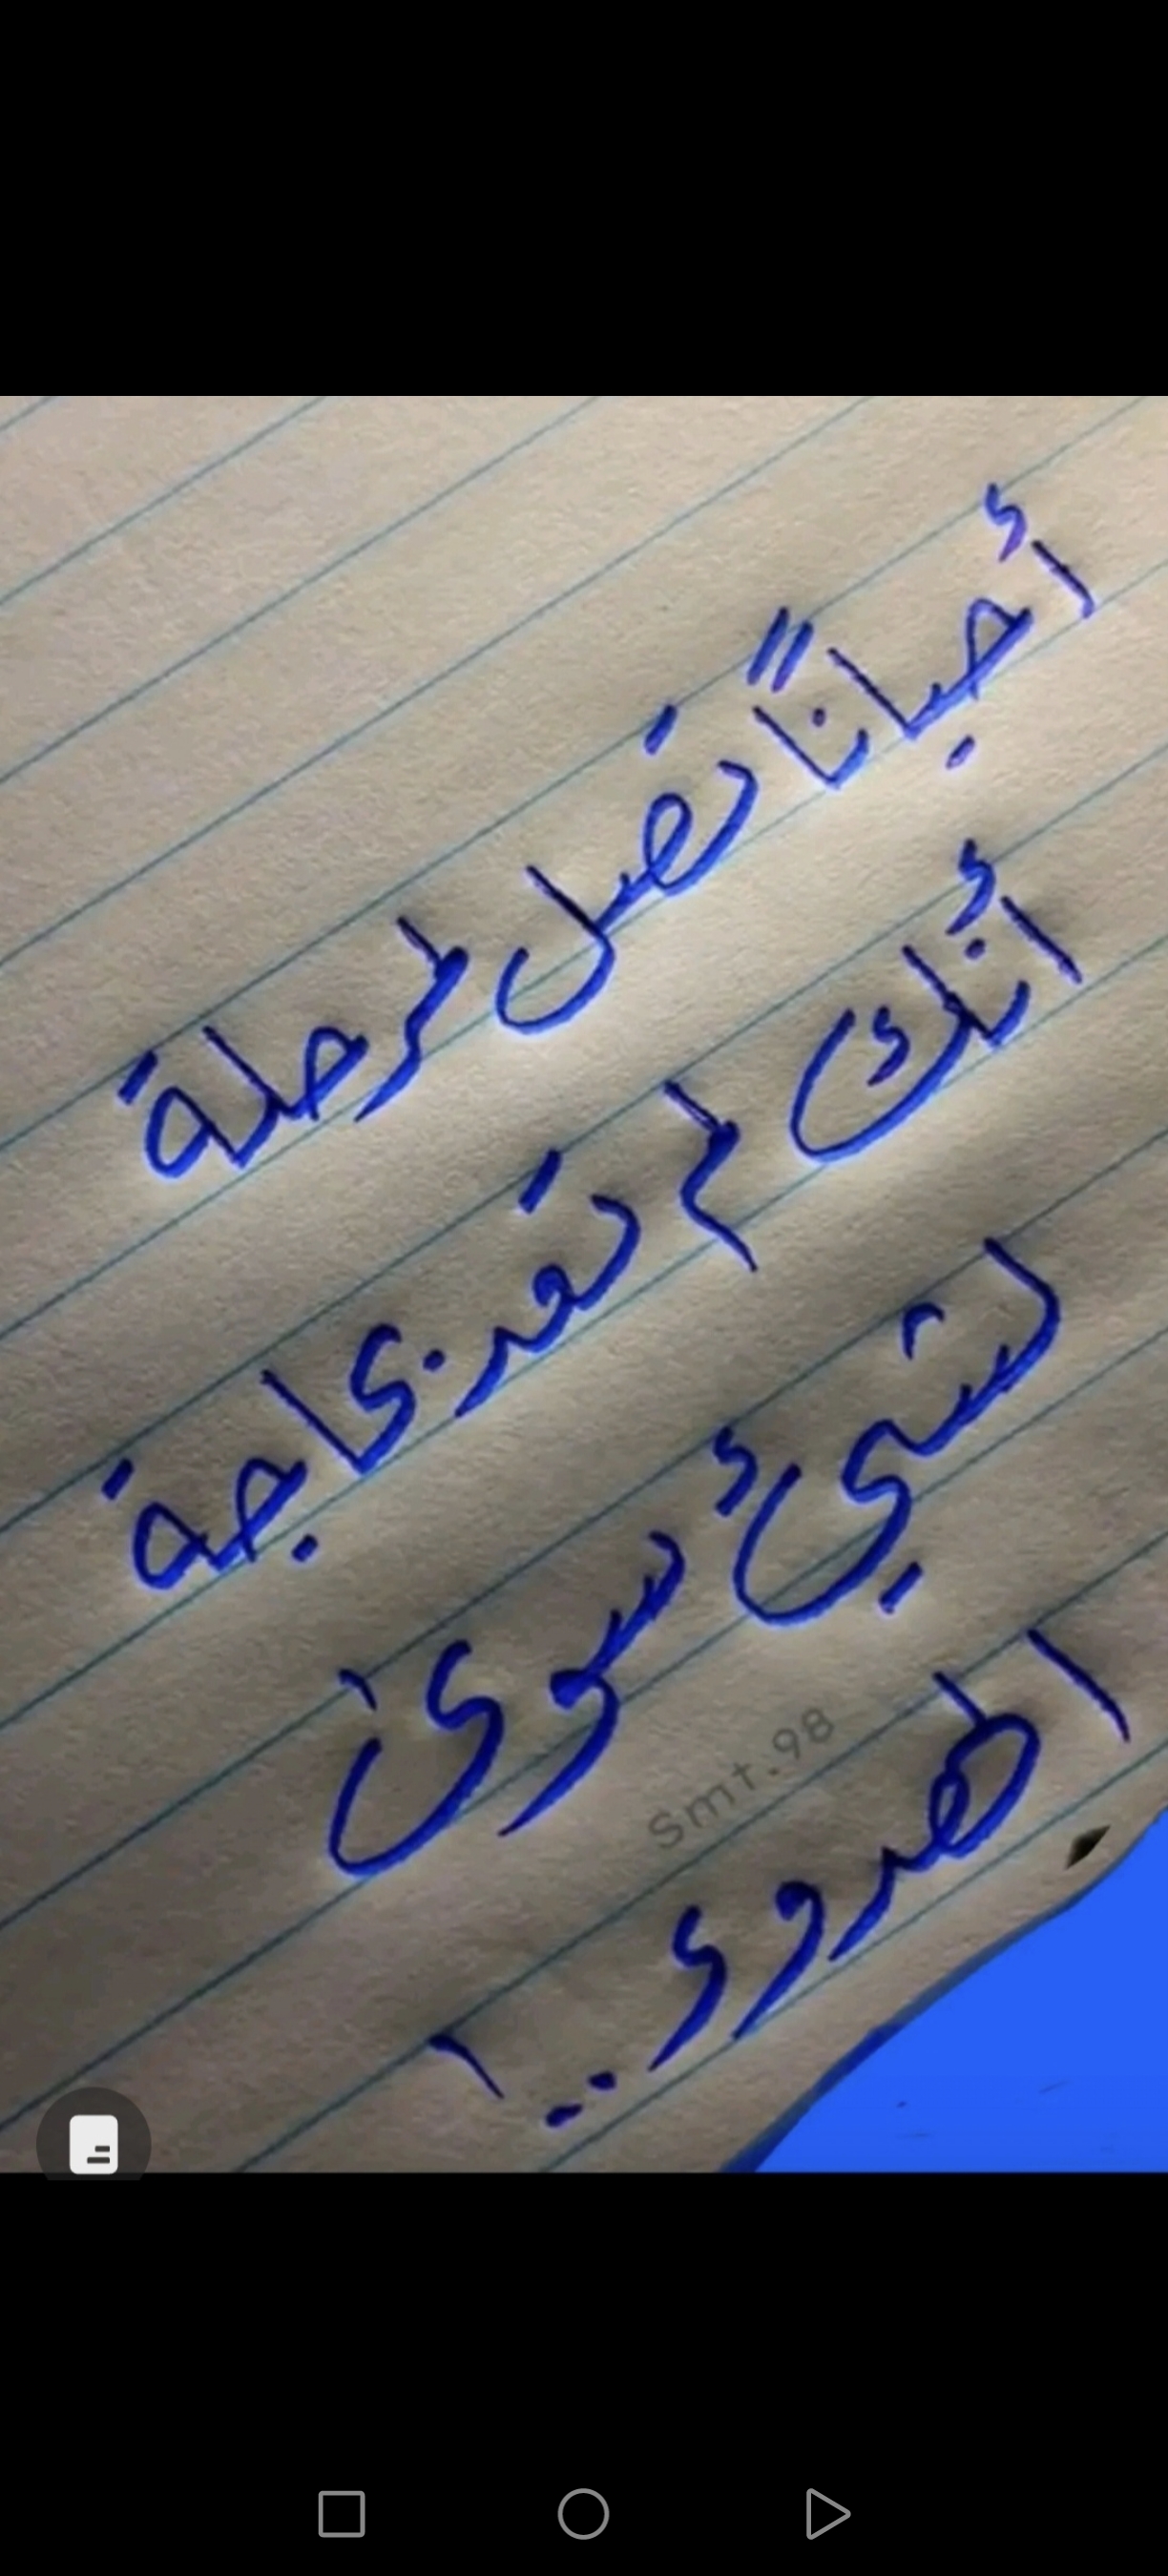 أحياناً تصل لمرحلة
أنك لم تعد بحاجة
لشيء سوى
الهدوء..!
Smt.98